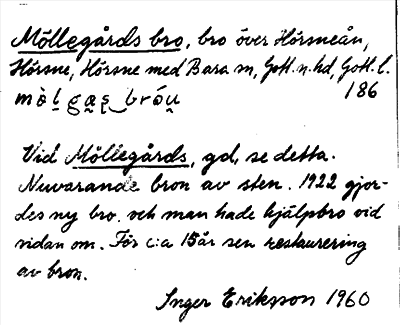 Möllegårds bro, bro över Hörsneån,
Hörsne, Hörsne med Bara sn, Gotl. n. hd, Gotl. l.
mò̀l̥ gæs̨ brǻu̯ 186
Vid Möllegårds, gd, se detta.
Nuvarande bron av sten. 1922 gjor-
des ny bro och man hade hjälpbro vid
sidan om. För c:a 15 år sen restaurering
av bron.
Inger Eriksson 1960